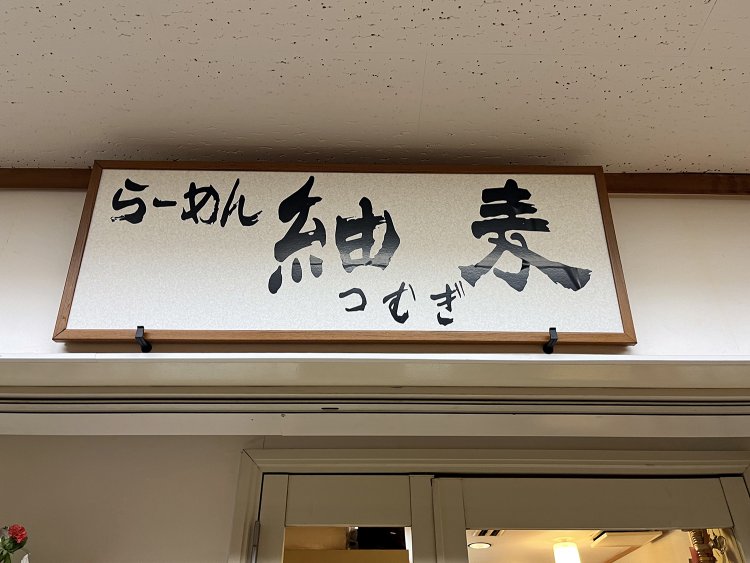 らーめん 紬麦
つむぎ